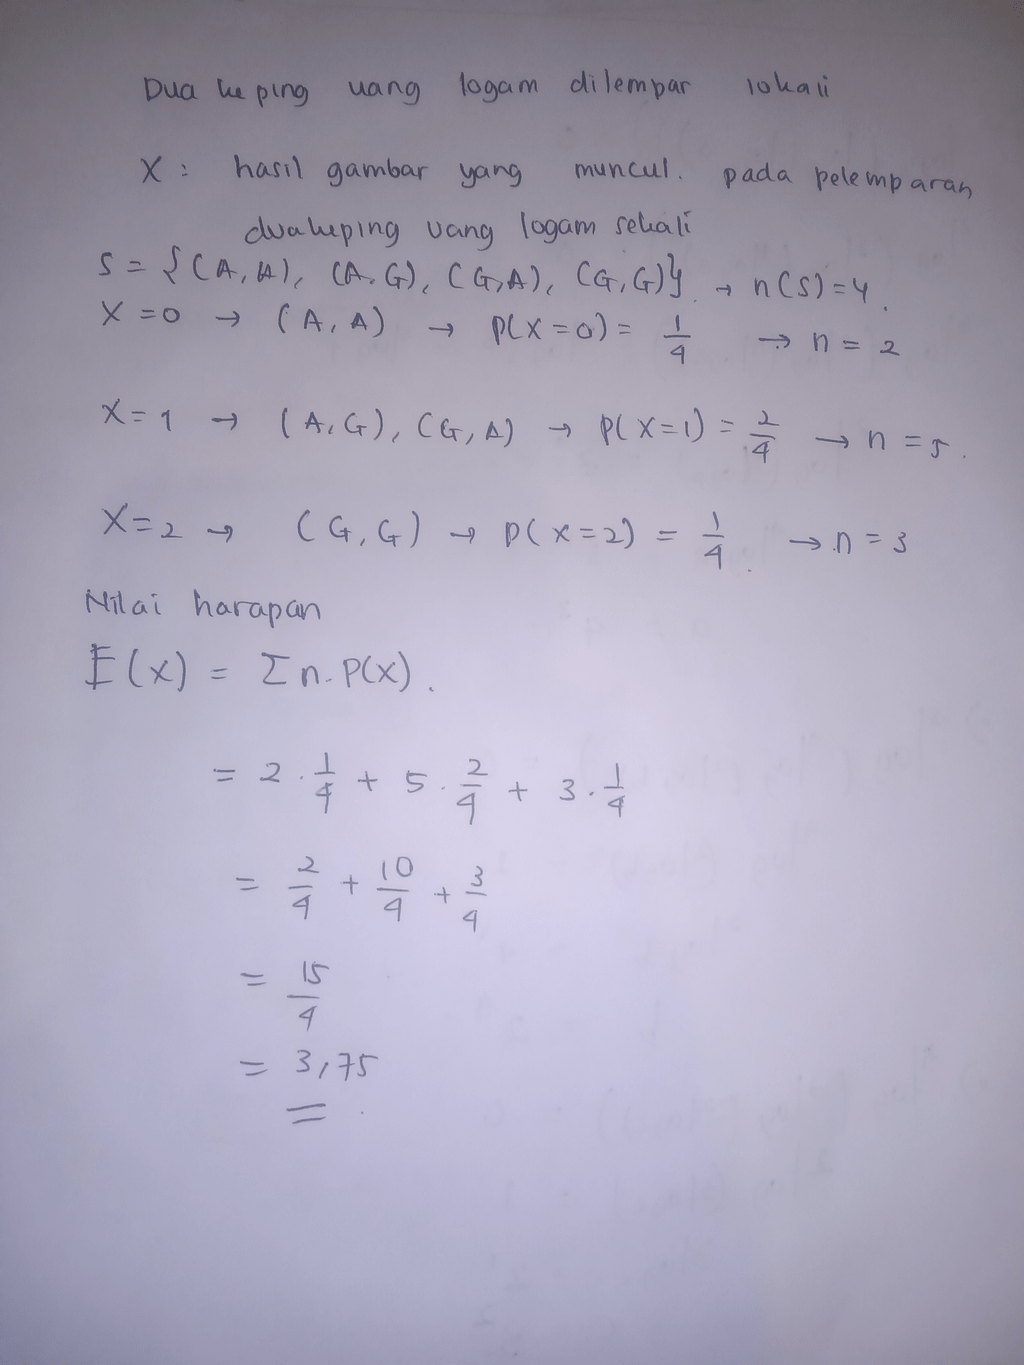 Dua keping uang logam dilempar 10kali
X : hasil gambar yang muncul. pada pelemparan
dua keping uang logam sekali
S = {(A,A), (A,G), (G,A), (G,G)} → n(S)=4.
X=0 → (A,A) → P(X=0) = 1/4 → n = 2
X=1 → (A,G), (G,A) → P(X=1) = 2/4 → n = 5.
X=2 → (G,G) → P(X=2) = 1/4 → n = 3
Nilai harapan
E(x) = Σ n. P(x).
= 2 . 1/4 + 5 . 2/4 + 3 . 1/4
= 2/4 + 10/4 + 3/4
= 15/4
= 3,75